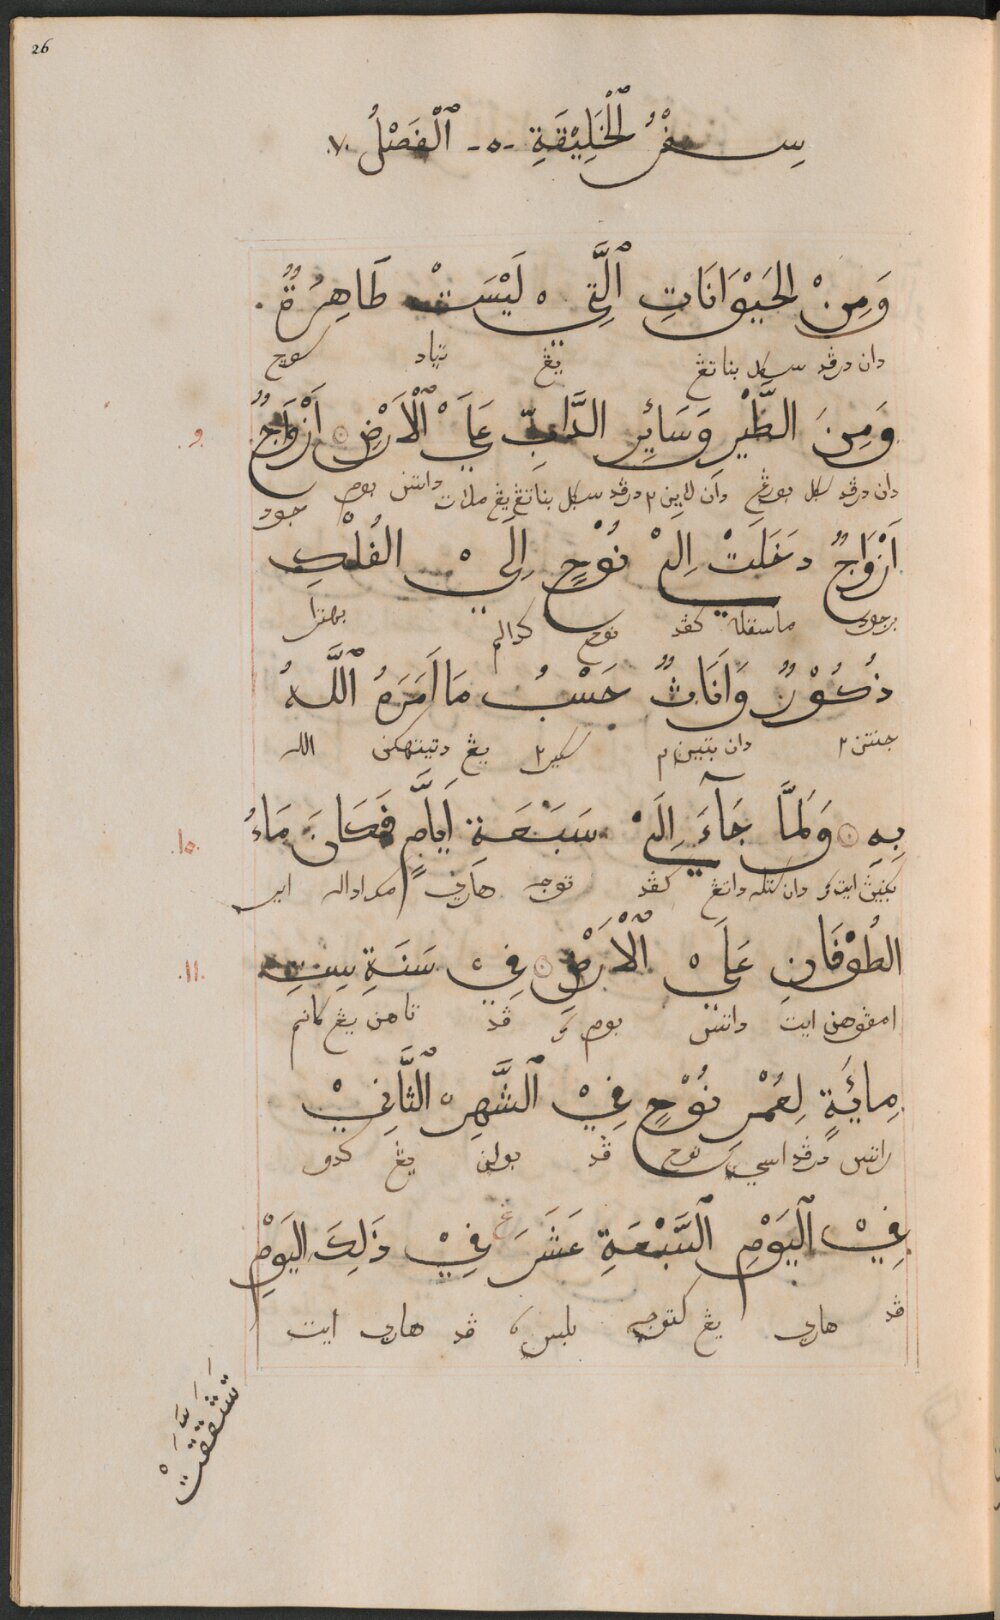 26
سِفْرُ الْخَلِيْقَةِ -٥- اَلْفَصْلُ ٧.
وَمِنْ الحَيْوَانَاتِ اَلَّتِيْ لَيْسَتْ طَاهِرُةٌ.
دان درڤد سکل بناتڠ يڠ تياد سوچ
٩. وَمِنَ الطَّيْرِ وَسَائِرِ الدَّابِّ عَلَيْ الْاَرْضِ ۞ اَزْوَاجٌ
دان درڤد سکل بورڠ دان لاين٢ درڤد سکل بناتڠ يڠ ملات داتس بوم جود
اَزْوَاجٌ دَخَلَتْ اِلَيْ نُوْحٍ اِلَيْ الفُلْكِ
برجود ماسقله کڤد نوح کدالم بهترا
ذُكُوْرٌ وَاَنَاثٌ حَسْبُ مَا اَمَرَهُ اَللّٰهُ
جنتن٢ دان بتين٢ سکير٢ يڠ دتيتهکن الله
بِهِ ۞ وَلَمَّا جَآءَ اِلَيْ سَبَعَةِ اَيَّامٍ فَكَانَ مَاءُ
١٠.
دان ستله داتڠ کڤد توجه هاري مک اداله اير
الطُوْفَانِ عَلَيْ الْاَرْضِ ۞ فِيْ سَنَةِ سِتِ
١١.
امڤوهن ايت داتس بوم ڤد تاهن يڠ کانم
مِائَةٍ لِعُمْرِ نُوْحٍ فِيْ اَلشَّهِرْ الْثَّانِيْ
راتس درڤد اسي نوح ڤد بولن يڠ کدو
فِيْ اَلْيَوْمِ اَلسَّبْعَةِ عَشَرَ فِيْ ذَلِكَ اليَوْمِ
ڤد هاري يڠ کتوجه بلس ڤد هاري ايت
تَشَقَّقَتْ